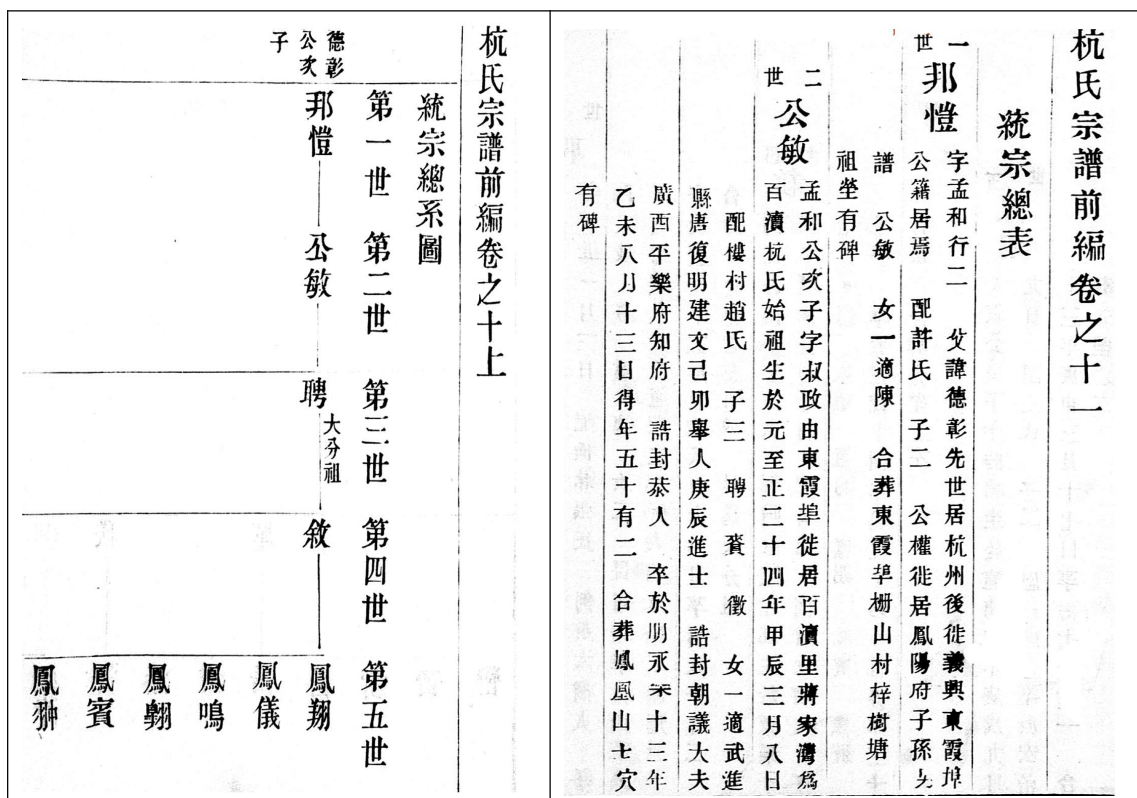 杭氏宗譜前編卷之十一
統宗總表
一世
邦愷
字孟和行二 父諱德彰先世居杭州後徙義興東霞埠
公籍居焉 配許氏 子二 公權徙居鳳陽府子孫失
譜 公敏 女一適陳 合葬東霞埠柵山村梓樹塘
祖塋有碑
二世
公敏
孟和公次子字叔政由東霞埠徙居百瀆里蔣家灣爲
百瀆杭氏始祖生於元至正二十四年甲辰三月八日
配樓村趙氏 子三 聘 賚 徵 女一適武進
縣唐復明建文己卯舉人庚辰進士 誥封朝議大夫
廣西平樂府知府 誥封恭人 卒於明永樂十三年
乙未八月十三日得年五十有二 合葬鳳凰山士穴
有碑
杭氏宗譜前編卷之十上
統宗總系圖
第一世 第二世 第三世 第四世 第五世
德彰
公次
子
邦愷 公敏 聘 敘 鳳翔
大分祖
鳳儀
鳳鳴
鳳翱
鳳賓
鳳翀